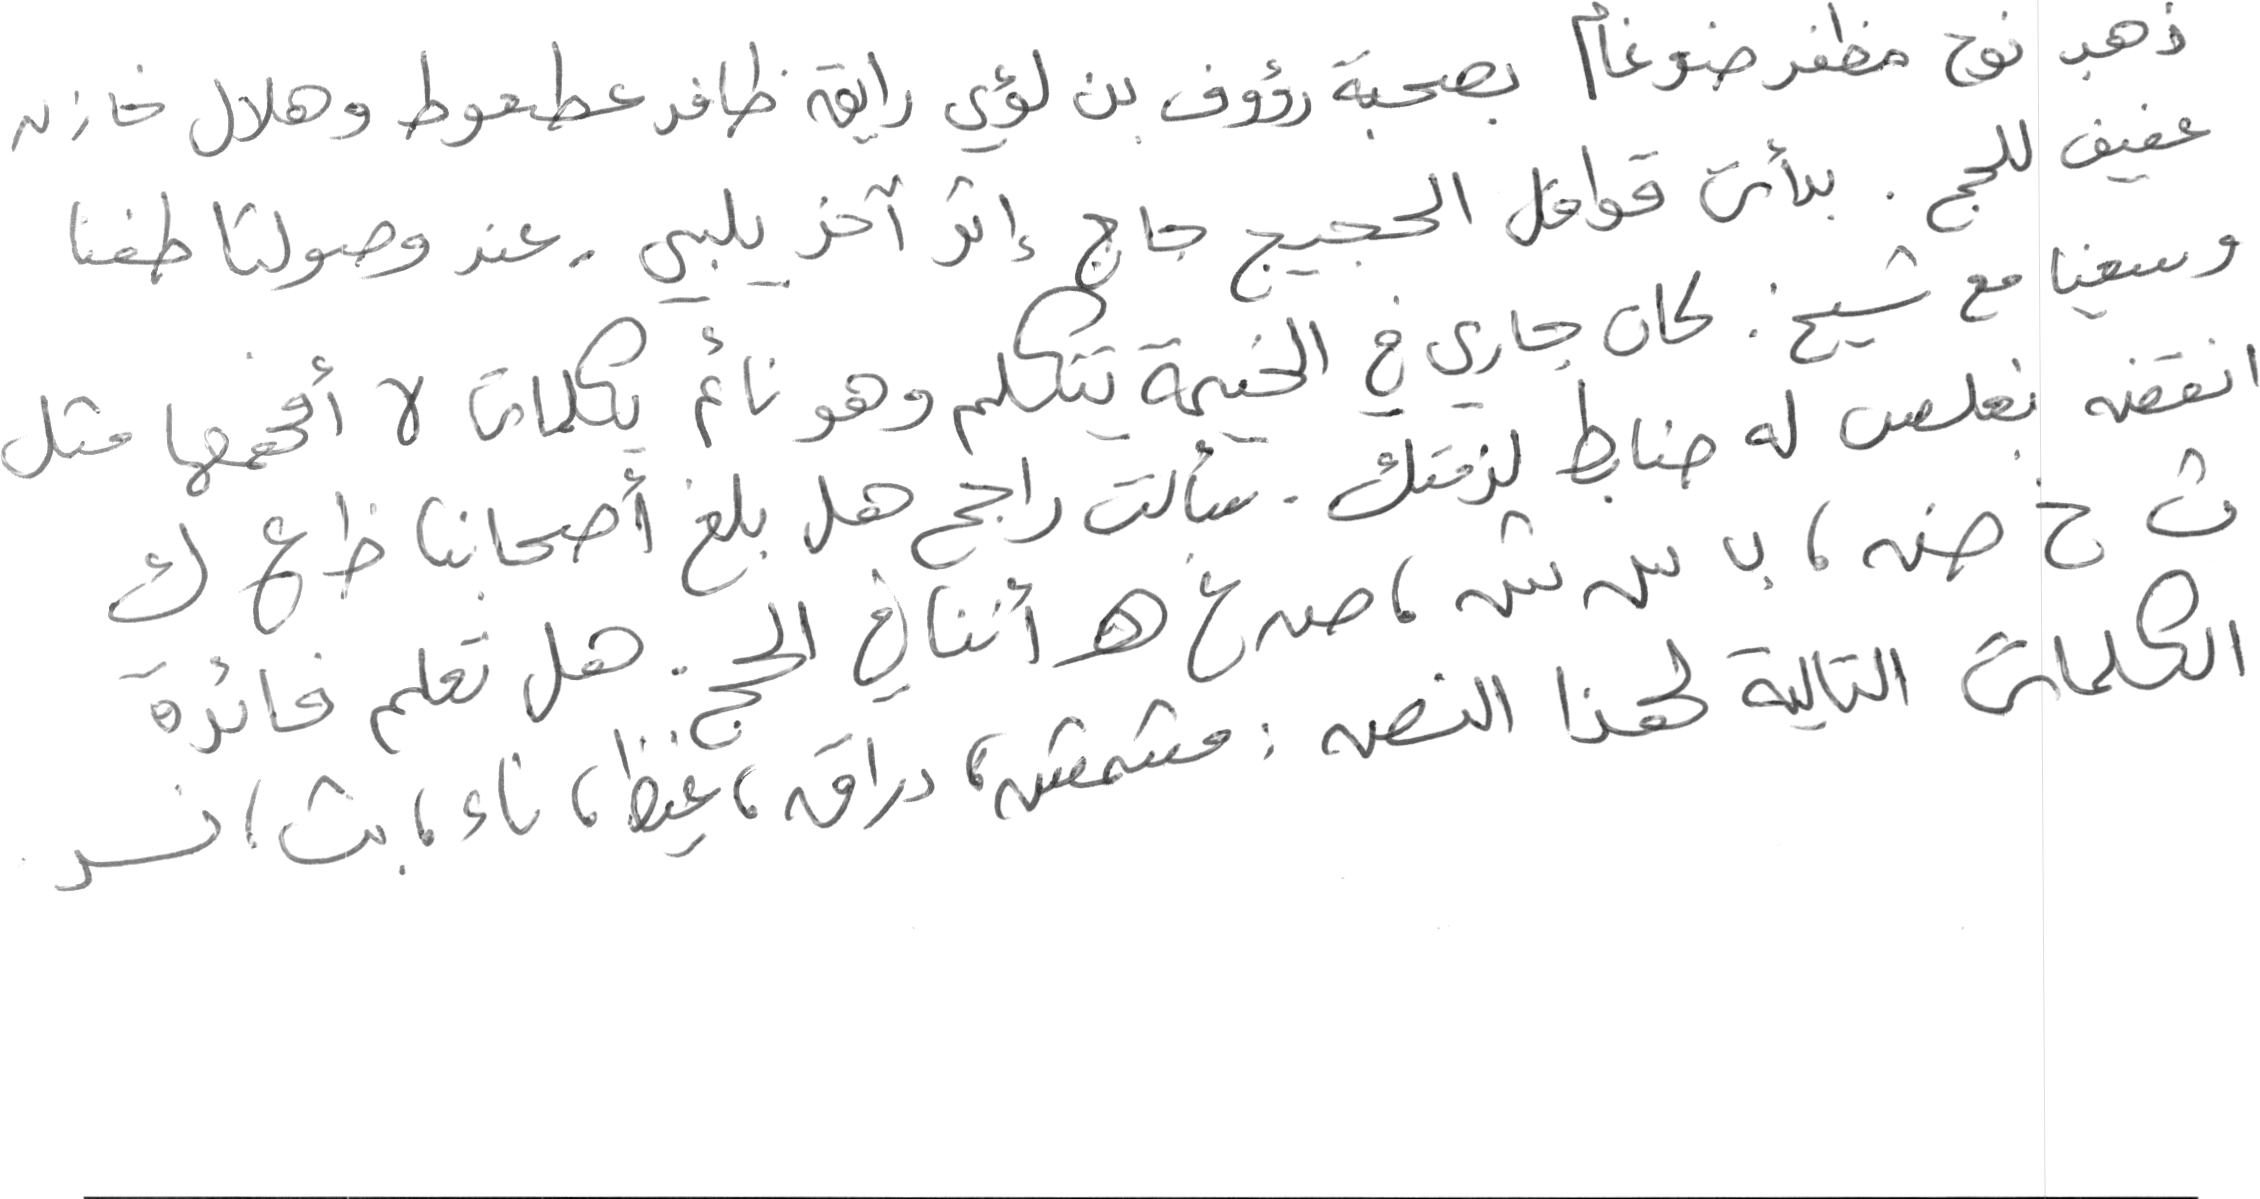 ذهب نوح مظفر ضرغام بصحبة رؤوف بن لؤي رايق ظافر عطعوط وهلال خازن
عفيف للحج . بدأت قوافل الحجيج حاج إثر آخر يلبي . عند وصولنا طفنا
وسعينا مع شيخ . كان جاري في الخيمة يتكلم وهو نائم بكلمات لا أفهمها مثل
انقض بغلس له ضابط لزمتك . سألت راجح هل بلغ أصحابنا ظ ع ك
ث خ ض ، ب س ش ، ص غ ه أننا في الحج . هل تعلم فائدة
الكلمات التالية لهذا النص : مشمش ، دراق ، غيظ ، ناء ، بث ، نسر